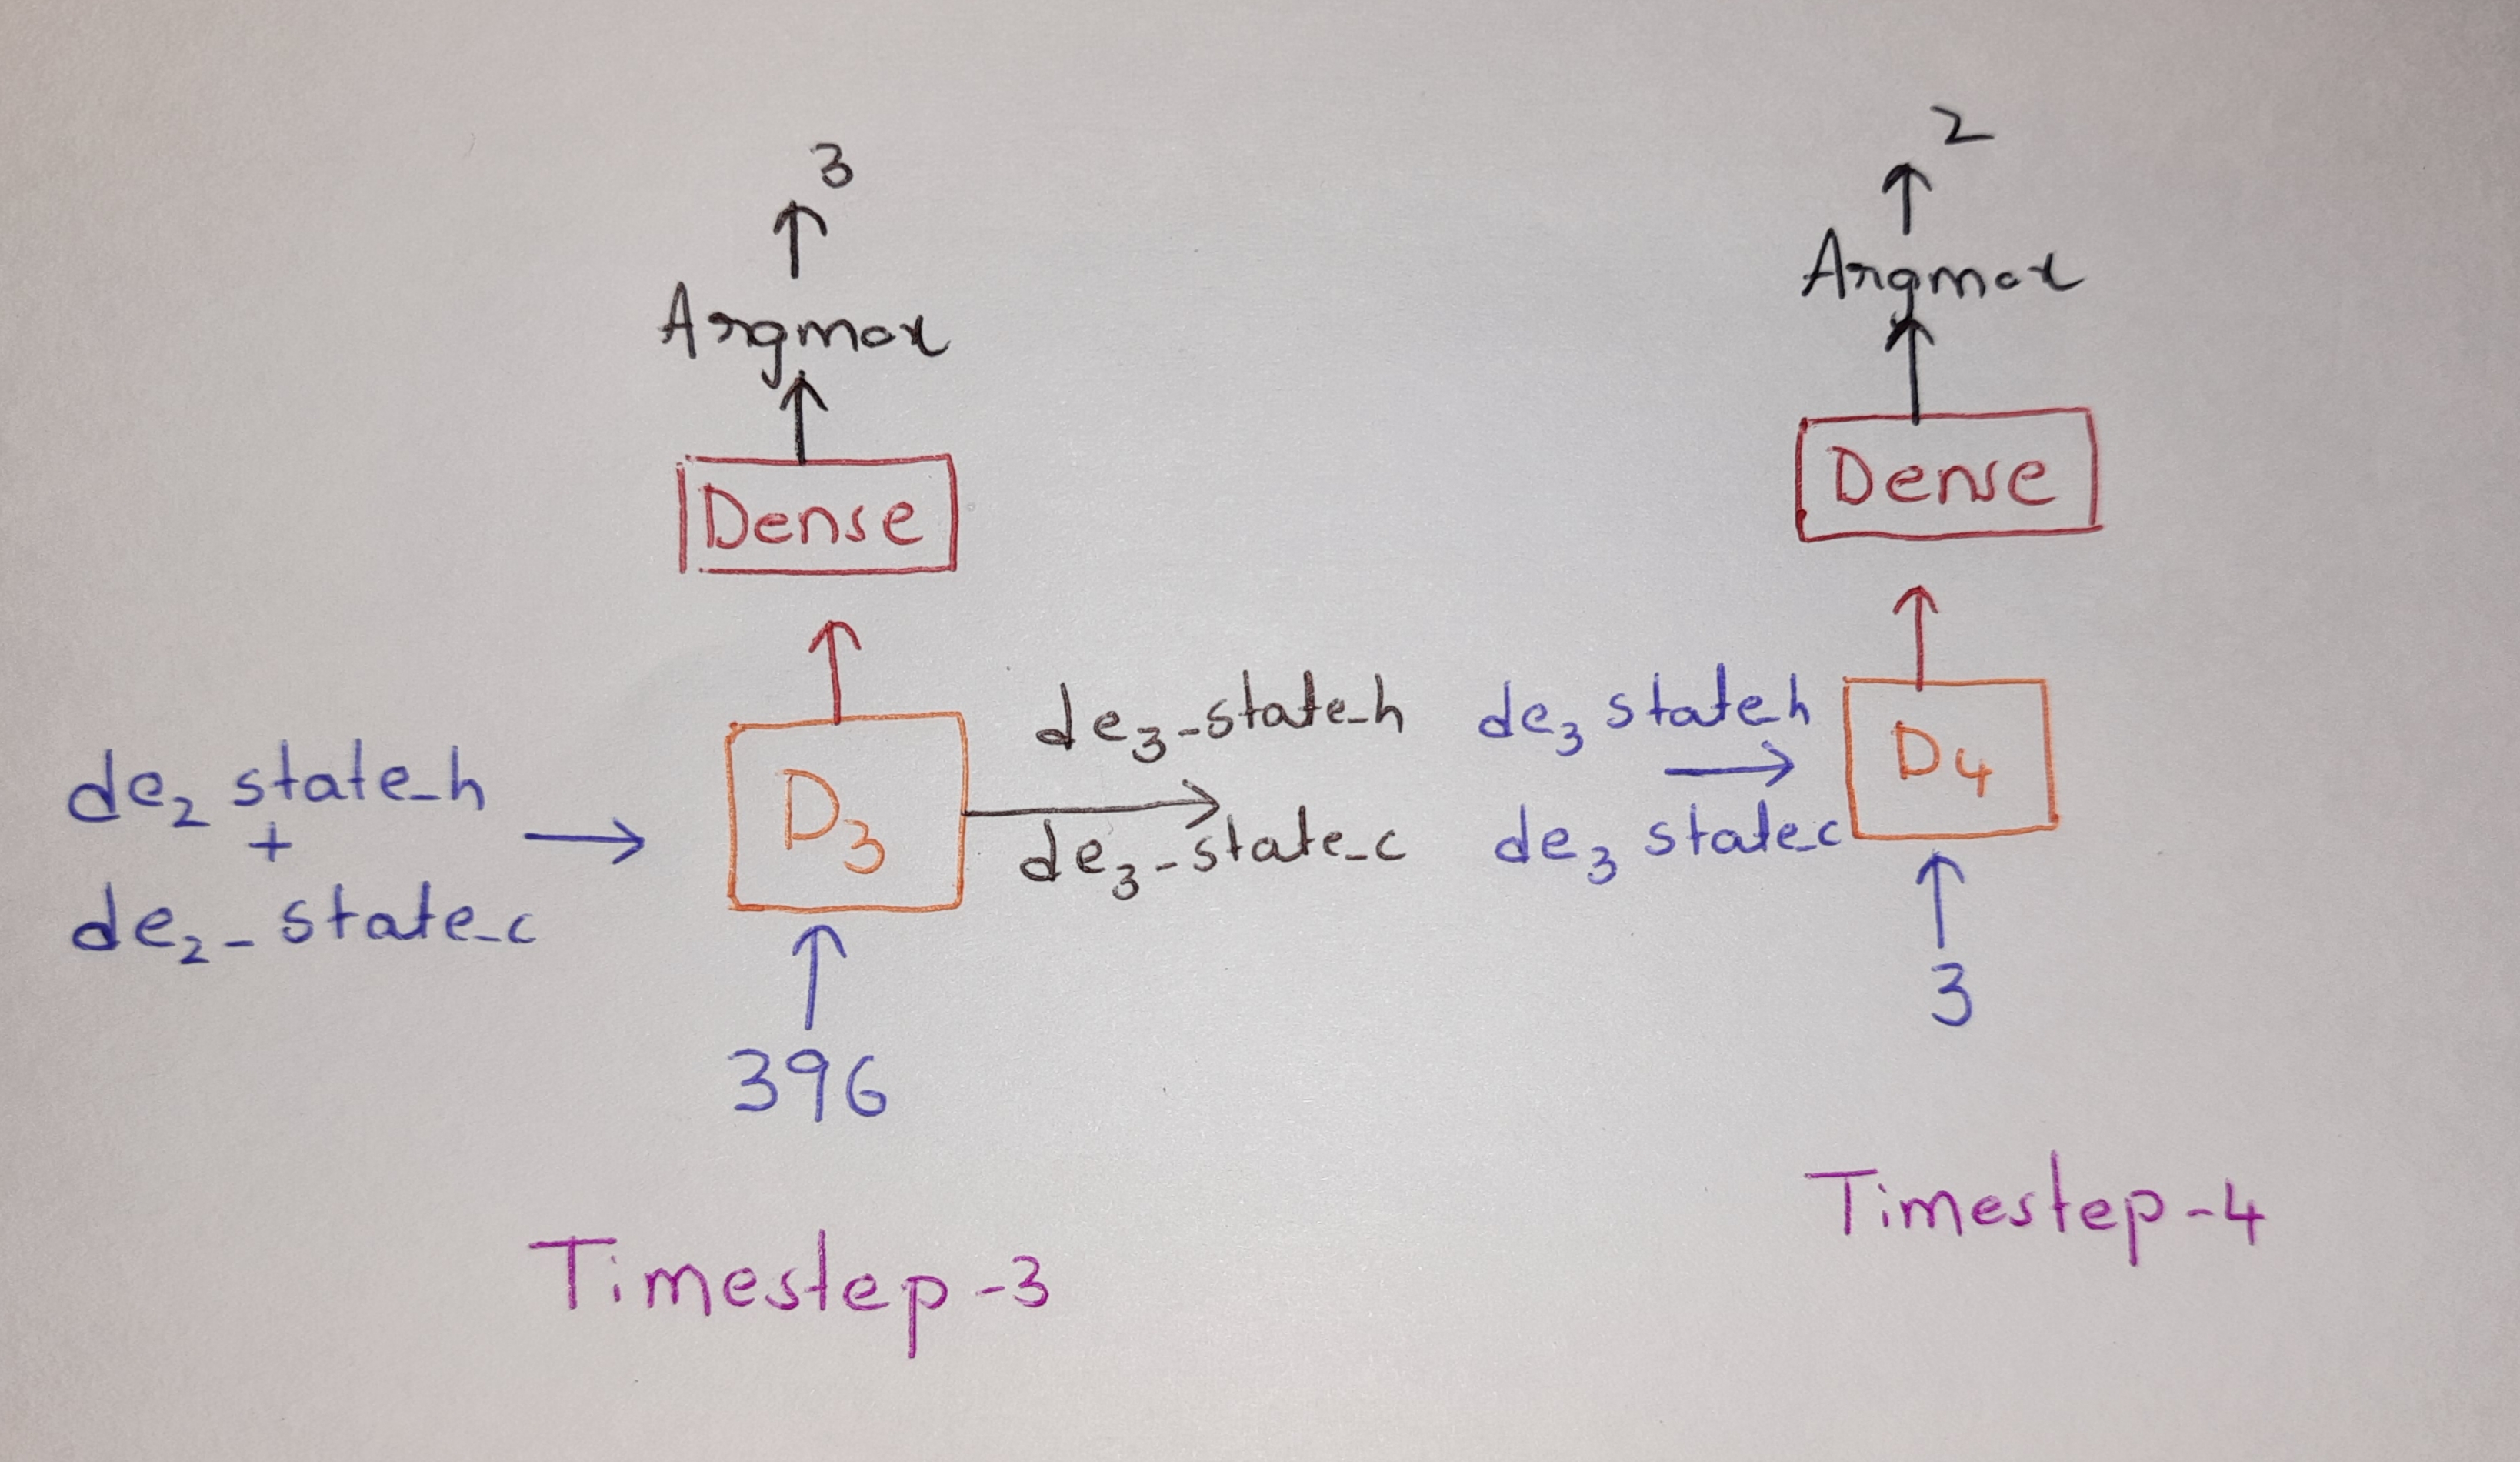 3
Argmax
Dense
de2 state_h
+
de2_state_c
D3
396
de3_state_h
de3_state_c
Timestep-3
2
Argmax
Dense
de3 state_h
de3 state_c
D4
3
Timestep-4